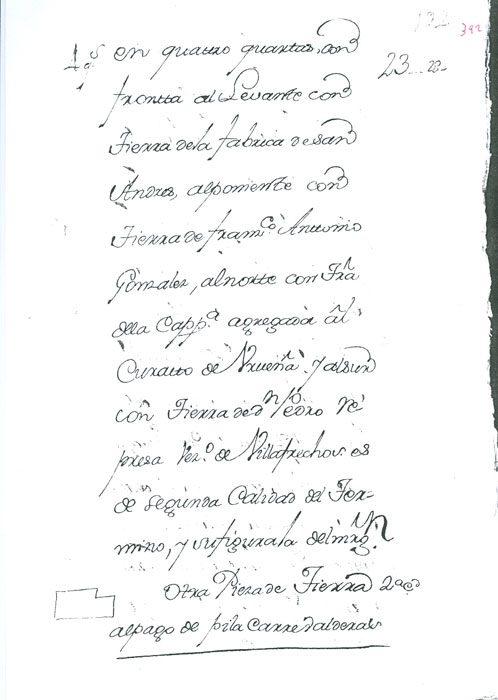 132
392
1ª s en quattro quartas, con
23
frontta al Levante con
Tierra de la fabrica de san
Andres, alponiente con
Tierra de fran.co Anttonio
Gonzalez, alnortte con Trâ
della Capp.a agregada al
Curatto de Vrueña, y alsur
con Tierra de d.n Pedro Re
presa Vez.o de Villafrechos es
de segunda Calidad del Ter-
mino, y su figura la del mrg.n
Otra Pieza de Tierra
alpago de pila Carre